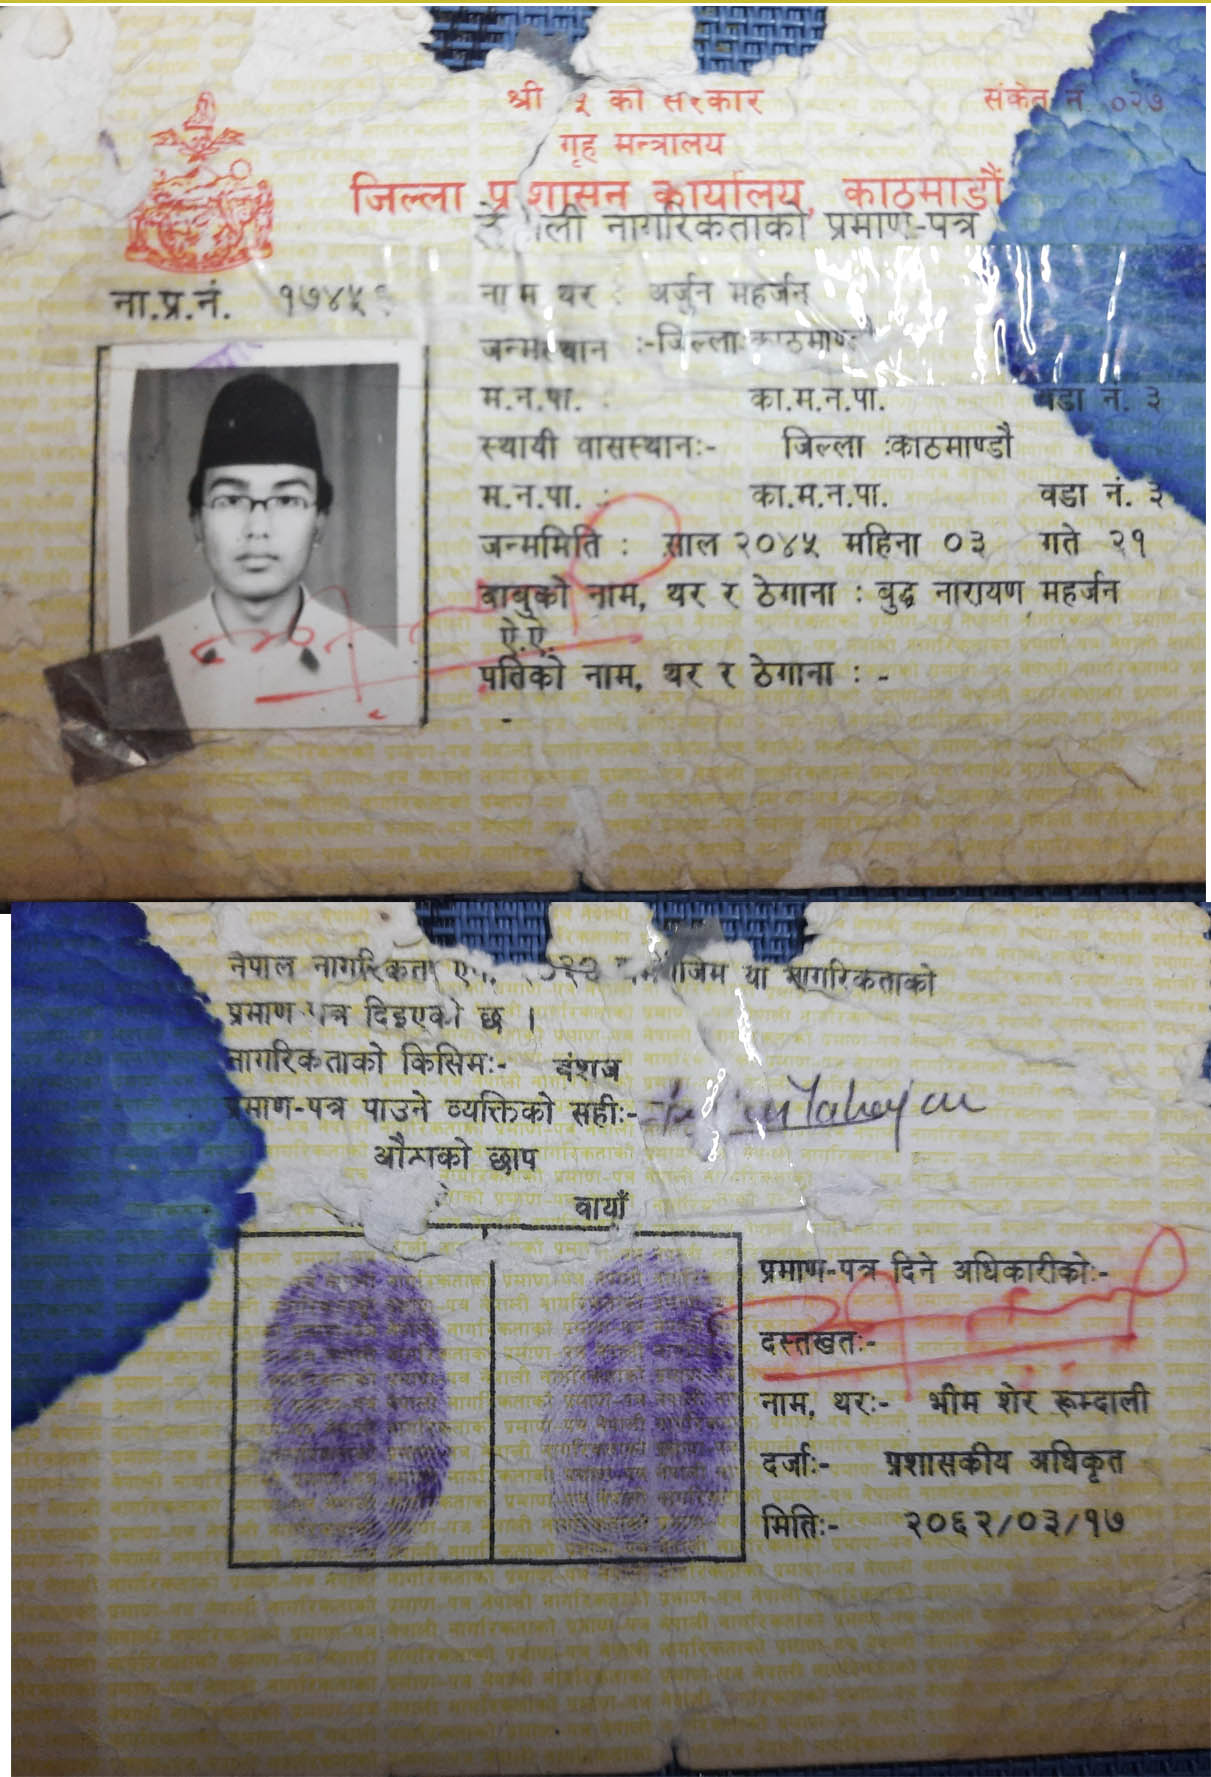 श्री ५ को सरकार
संकेत नं ०२७
गृह मन्त्रालय
जिल्ला प्रशासन कार्यालय, काठमाडौं
नागरिकताको प्रमाण-पत्र
ना.प्र.नं. १७४५
नाम थर : अर्जुन महर्जन
जन्मस्थान :-जिल्ला:काठमाण्डौ
म.न.पा. : का.म.न.पा. वडा नं. ३
स्थायी वासस्थान:- जिल्ला :काठमाण्डौ
म.न.पा. : का.म.न.पा. वडा नं. ३
जन्ममिति : साल २०४५ महिना ०३ गते २१
बाबुको नाम, थर र ठेगाना : बुद्ध नारायण महर्जन
ऐ.ऐ.
पतिको नाम, थर र ठेगाना : -
-
नेपाल नागरिकता या नागरिकताको
प्रमाण पत्र दिइएको छ ।
नागरिकताको किसिम:- वंशज
प्रमाण-पत्र पाउने व्यक्तिको सही:-
औंलाको छाप
वायाँ
प्रमाण-पत्र दिने अधिकारीको:-
दस्तखत:-
नाम, थर:- भीम शेर रूम्दाली
दर्जा:- प्रशासकीय अधिकृत
मिति:- २०६२/०३/१७